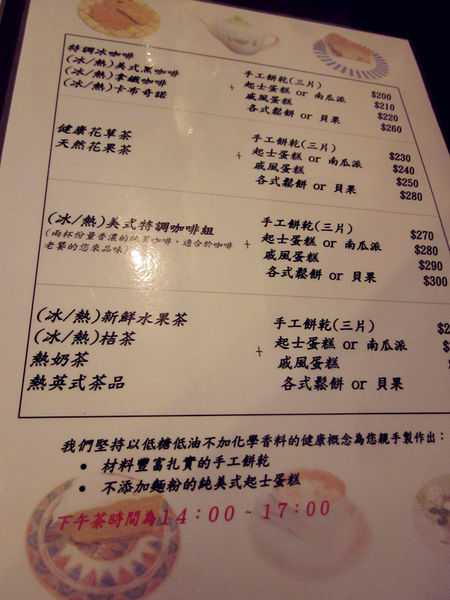 特調冰咖啡
(冰/熱)美式黑咖啡
(冰/熱)拿鐵咖啡
(冰/熱)卡布奇諾
+
手工餅乾(三片) $200
起士蛋糕 or 南瓜派 $210
戚風蛋糕 $220
各式鬆餅 or 貝果 $260
健康花草茶
天然花果茶
+
手工餅乾(三片) $230
起士蛋糕 or 南瓜派 $240
戚風蛋糕 $250
各式鬆餅 or 貝果 $280
(冰/熱)美式特調咖啡組
(兩杯份量香濃的純黑咖啡,適合於咖啡
老饕的您來品味
+
手工餅乾(三片) $270
起士蛋糕 or 南瓜派 $280
戚風蛋糕 $290
各式鬆餅 or 貝果 $300
(冰/熱)新鮮水果茶
(冰/熱)桔茶
熱奶茶
熱英式茶品
+
手工餅乾(三片)
起士蛋糕 or 南瓜派
戚風蛋糕
各式鬆餅 or 貝果
我們堅持以低糖低油不加化學香料的健康概念為您親手製作出:
• 材料豐富扎實的手工餅乾
• 不添加麵粉的純美式起士蛋糕
下午茶時間為14:00~17:00